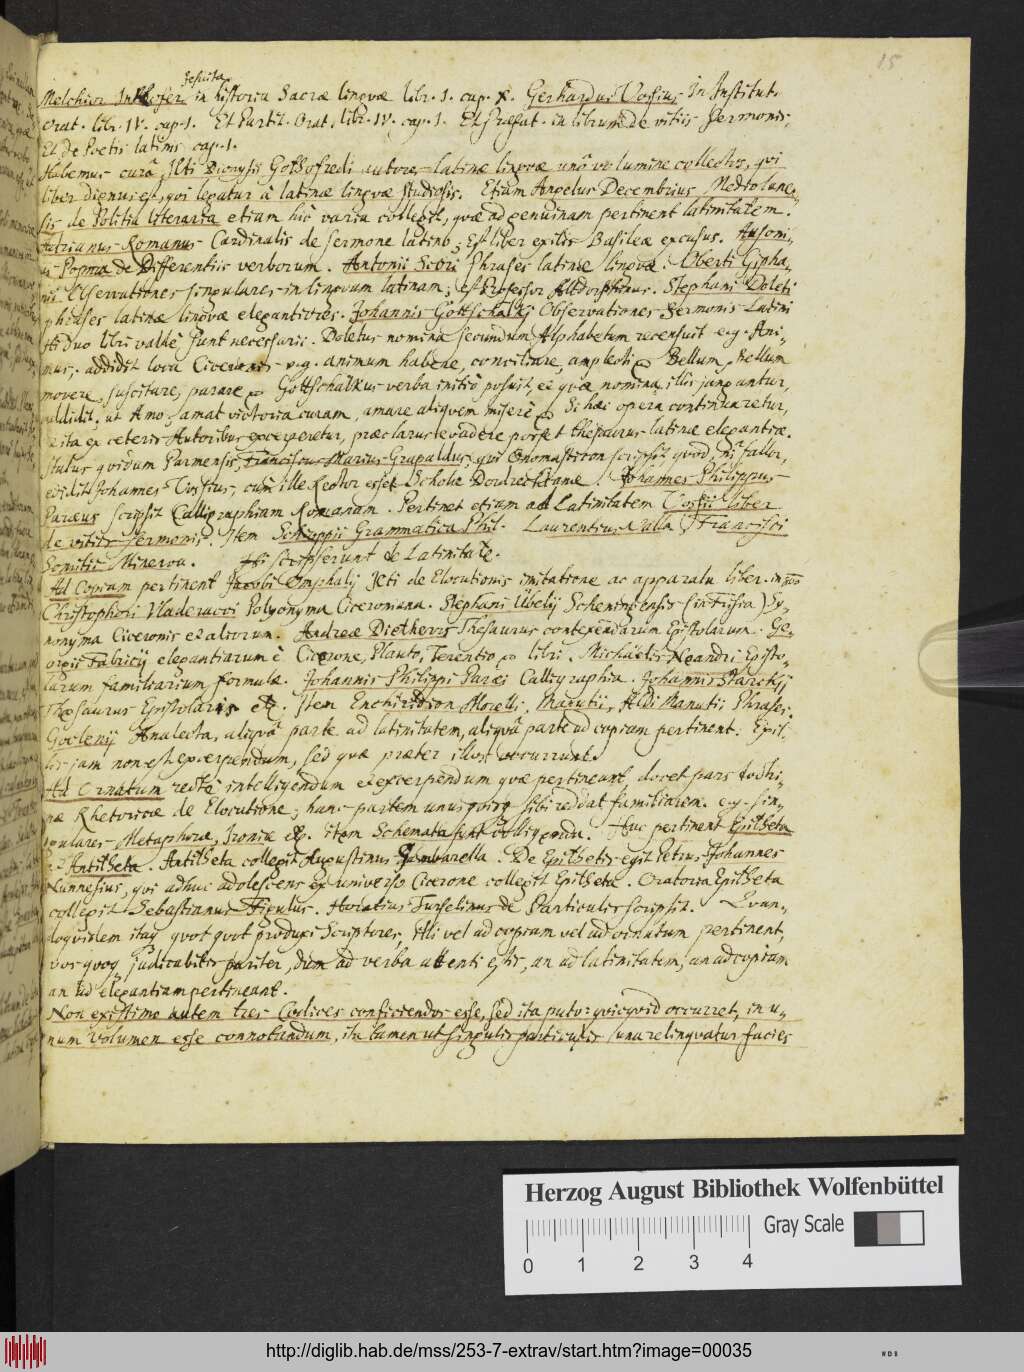 15
Jesuita
Melchior Inchofer in historia Sacræ linguæ libr. 1. cap. X. Gerhardus Vossius in Institut.
Orat. libr. IV. cap. 1. Et Partit. Orat. libr. IV. cap. 1. Et Præfat. in librum De vitiis Sermonis,
Et de Poetis latinis cap. 1.
Habemus curâ Icti Dionysii Gothofredi autores latinæ linguæ unô volumine collectos, qui
liber dignus est, qui legatur à latinæ linguæ studiosis. Etiam Angelus Decembrius Mediolanen-
sis de Politia literaria etiam hic varia collegit, quæ ad genuinam pertinent latinitatem.
Hadrianus Romanus Cardinalis de sermone latino; Est liber exilis Basileæ excusus. Ausoni-
us Popma de Differentiis verborum. Antonii Scori Phrases latinæ linguæ. Oberti Gipha-
nii Observationes singulares in linguam latinam; est Professor Altdorphinus. Stephani Doleti
phrases latinæ linguæ elegantiores. Johannis Gottschalkij Observationes Sermonis Latini
Hi duo libri valdè sunt necessarii. Doletus nomina secundum Alphabetum recensuit e.g. Ani-
mus, addidit loca Ciceronis v.g. animum habere, conciliare, amplecti Bellum, Bellum
movere, suscitare, parare Gottschalkus verba initiò posuit, et quæ nomina illis jungantur,
addidit, ut Amo, amat victoria curam, amare aliquem miserè Si hæc opera continuaretur,
et ita ex ceteris Autoribus excerperetur, præclarus evadere posset thesaurus latinæ elegantiæ.
quidam Parmensis, Franciscus Marius Grapaldus, qui Onomasticon scripsit quod, ni fallor,
edidit Johannes Vossius, cum ille Rector esset Scholæ Dordrechtanæ. Johannes Philippus
Paræus scripsit Calligraphiam Romanam. Pertinet etiam ad Latinitatem Vossii liber
de vitiis sermonis. Item Schoppii Grammatica Phil. Laurentius Valla, Francisci
Sanctii Minerva. Hi scripserunt de Latinitate.
Ad Copiam pertinent Jacobi Omphalij Jcti de Elocutionis imitatione ac apparatu liber.
Christophori Vladeracci Polyonyma Ciceroniana. Stephani Ubelij Scheningensis (in Frisia) Sy-
nonyma Ciceronis et aliorum. Andreæ Dietheris Thesaurus contexendarum Epistolarum. Ge-
orgii Fabricij elegantiarum è Cicerone, Plauto, Terentio libri. Michaëlis Neandri Episto-
larum familiarium formulæ. Johannis Philippi Paræi Calligraphia. Johannis Starckij
Thesaurus Epistolaris etc. Item Enchiridion Morelli, Manutii, Aldi Manutii Phrases.
Goclenij Analecta, aliquâ parte ad latinitatem, aliquâ parte ad copiam pertinent.
jam non est excerpendum, sed quæ præter illos occurrunt.
Ad Ornatum rectè intelligendum et excerpendum quæ pertineant, docet pars doctri-
næ Rhetoricæ de Elocutione; hanc partem unusquisq sibi reddat familiarem. e.g. sin-
gulares Metaphoræ, Ironiæ etc. item Schemata sunt colligenda. Huc pertinent Epitheta
et Antitheta. Antitheta collegit Augustinus Gambarella. De Epithetis egit Petrus Johannes
Nunnesius, qui adhuc adolescens ex universo Cicerone collegit Epitheta. Oratoria Epitheta
collegit Sebastianus Figulus. Horatius Turselinus de Particulis scripsit. Evan-
doquidem itaq quotquot produxi Scriptores, illi vel ad copiam vel ad ornatum pertinent,
vos quoq judicabitis pariter, dum ad verba attenti estis, an ad latinitatem, an ad copiam
an ad elegantiam pertineant.
Non existimo autem tres Codices conficiendos esse, sed ita puto: quicquid occurret, in u-
num volumen esse connotandum, ita tamen ut singulis particulis suna relinquatur facies
Herzog August Bibliothek Wolfenbüttel
Gray Scale
0 1 2 3 4
http://diglib.hab.de/mss/253-7-extrav/start.htm?image=00035